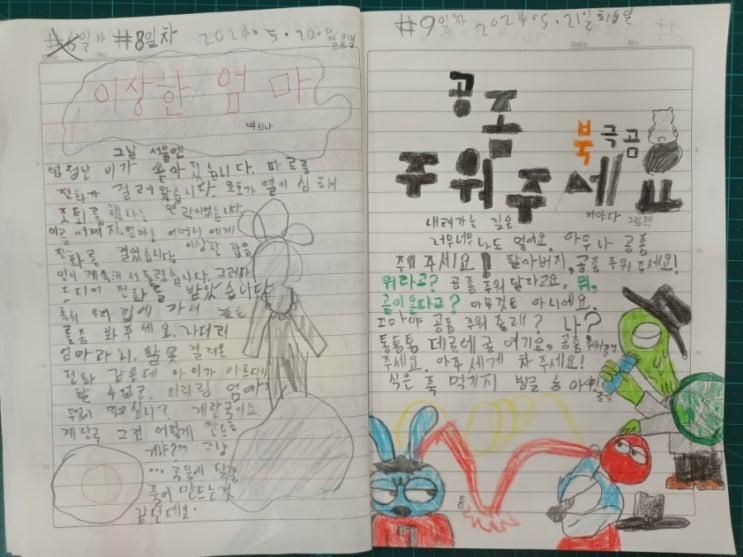 #8일차 2024.5.20.
이상한 엄마
백희나
그날 서울엔
엄청난 비가 쏟아졌습니다.
전화가 걸려왔습니다. 호호가 열이 심해
조퇴를 했다는 연락이었습니다
이를 어쩌지. 엄마! 어머니에게
전화를 걸었습니다. 이상한 잡음만
계속해서 들렸습니다. 그러다
드디어 전화를 받았습니다
혹시 우리 집에 가서
좀 봐 주세요.
엄마라니, 잘못 걸려온
전화 같은데 아이가 아프다니
할 수 없군.
먹고 싶니? 계란국이요.
계란국 그건 어떻게 만드는
거야?? 그냥
... 국물에 달걀
풀어 만드는 것
같던데요.
#9일차 2024.5.21일 화요일
공 좀
주워주세요
북극곰
내려가는 길은
너무너무나도 멀어요. 아무나 공좀
주워 주세요! 할아버지, 공좀 주워 주세요!
뭐라고? 공좀 주워 달라고요. 뭐,
곰이 온다고? 아무것도 아니에요.
꼬마야 공좀 주워 줄래? 나?
통통통 데굴데굴 여기요, 공좀 주워
주세요. 아주 세게 차 주세요!
식은 죽 먹기지 빙글